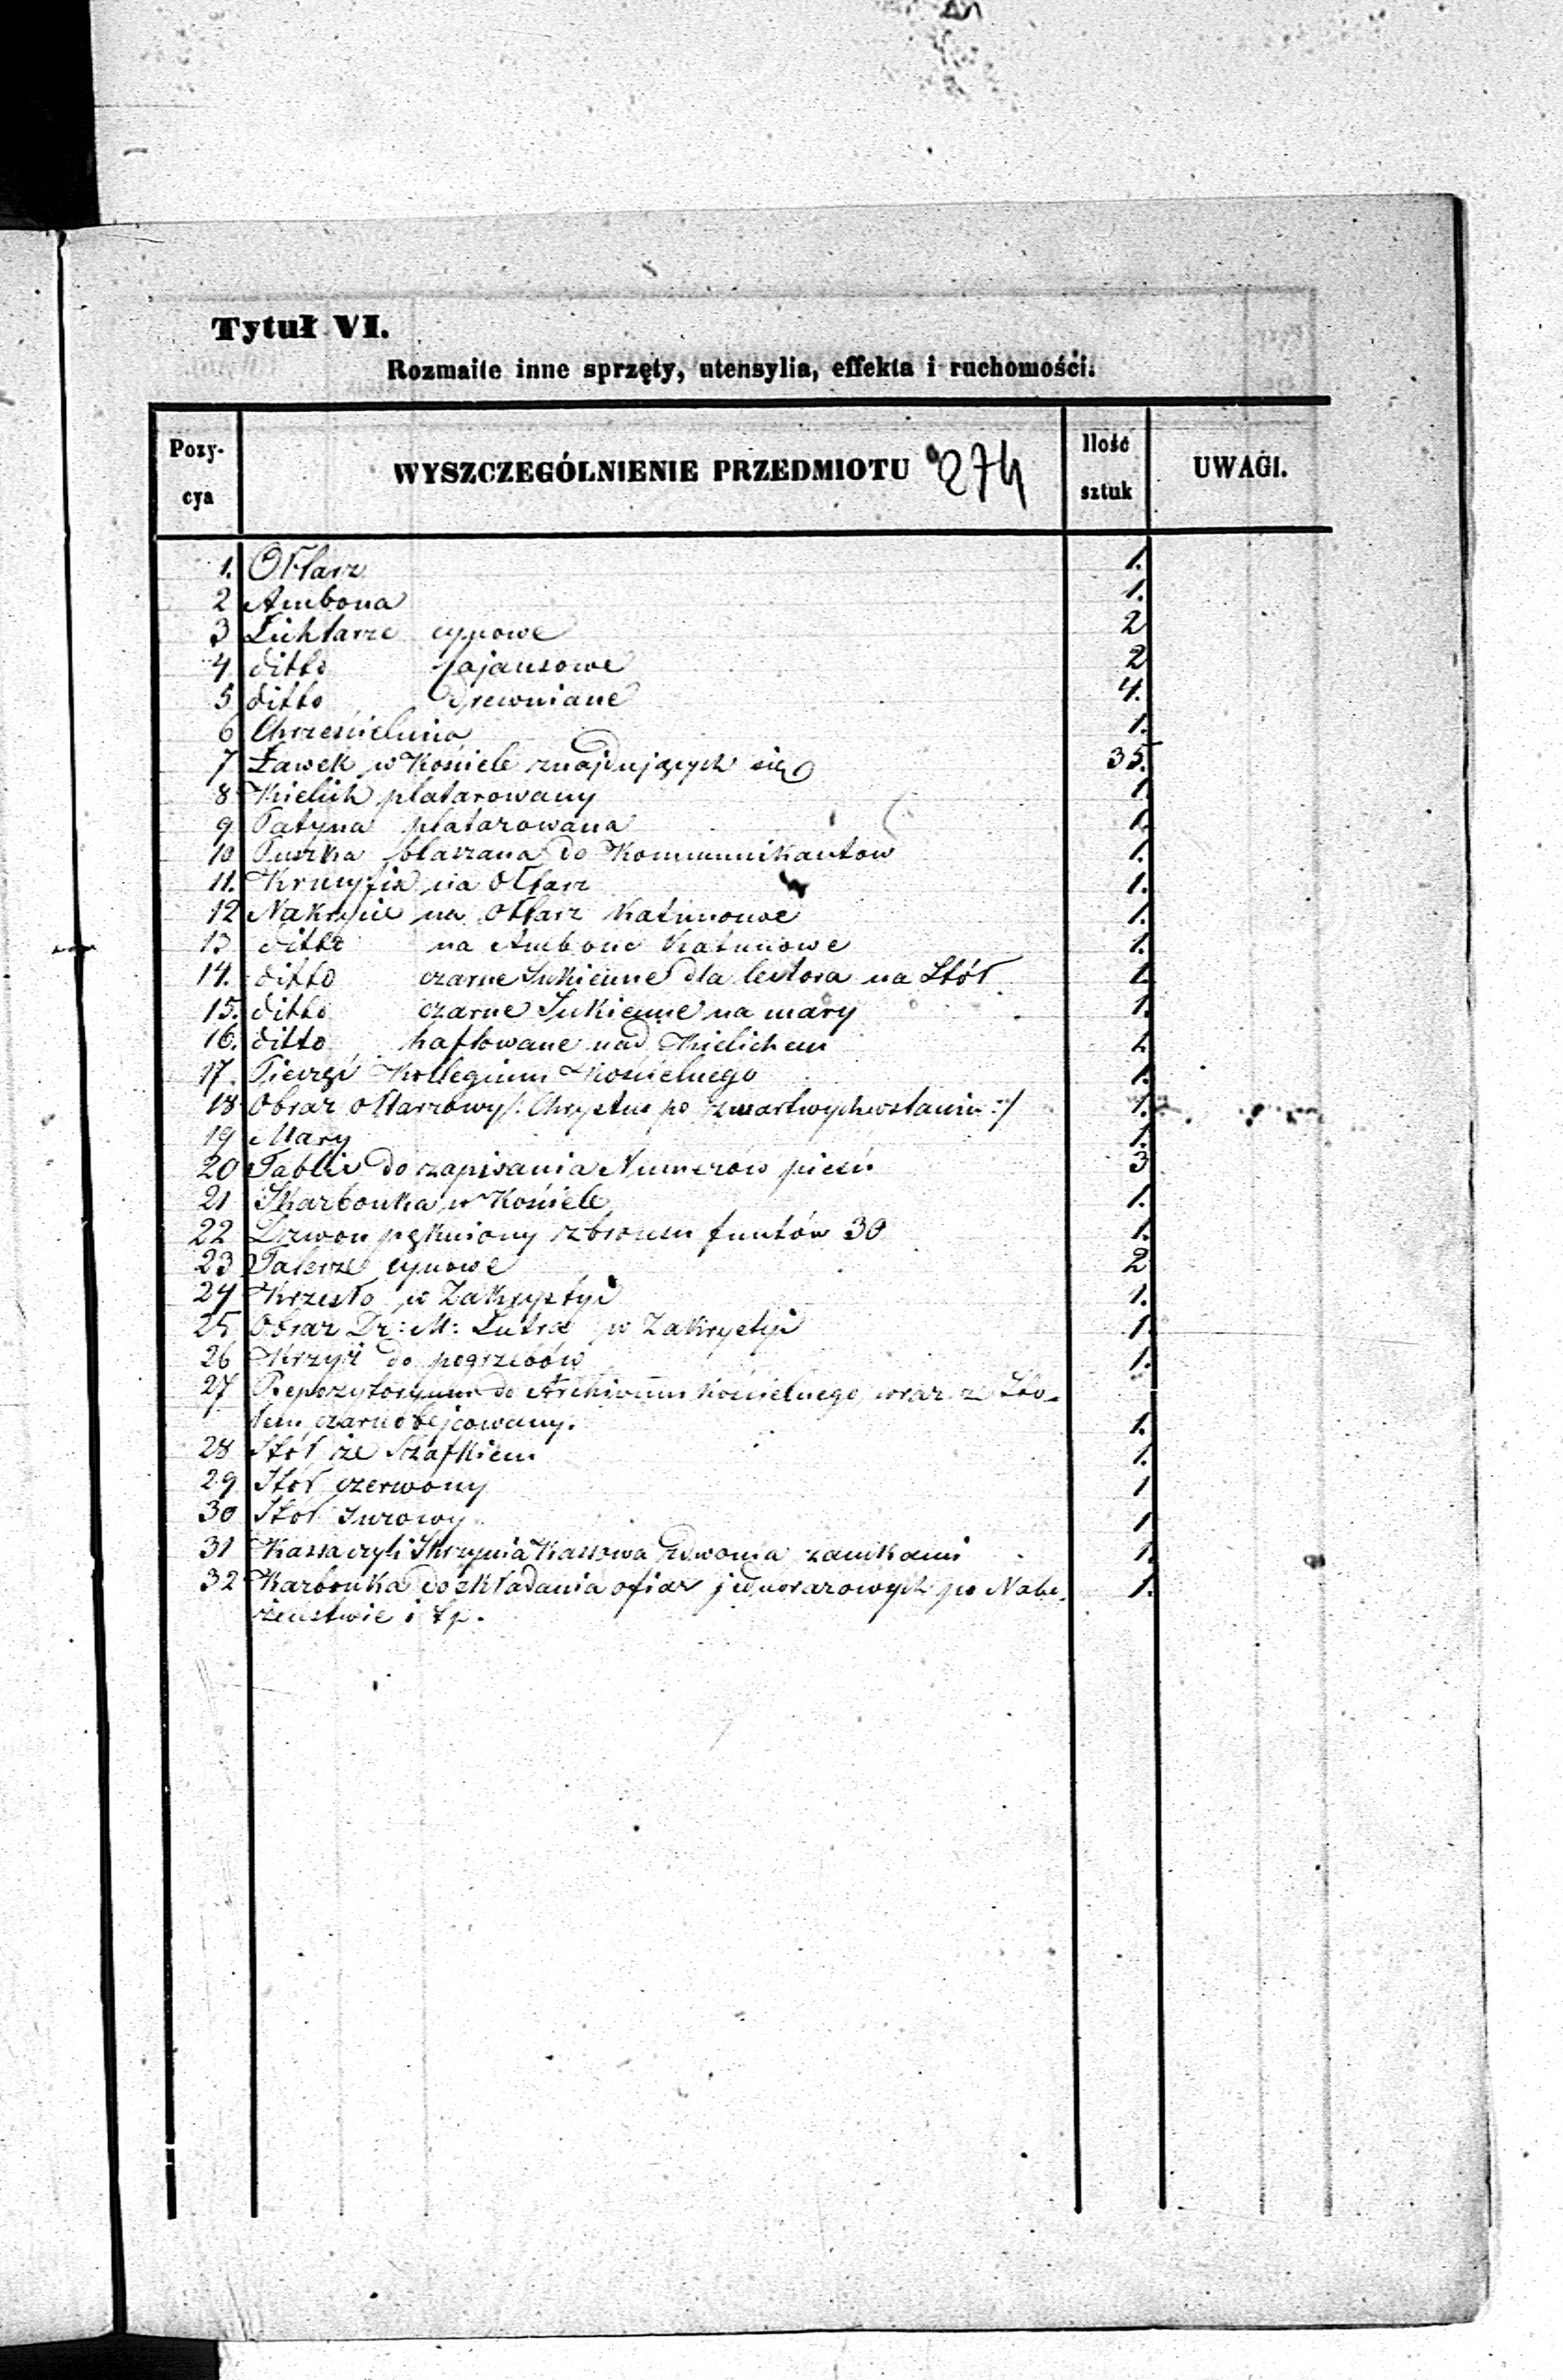 Tytuł VI.
Rozmaite inne sprzęty, utensylia, effekta i ruchomości.
Pozy-
cya
WYSZCZEGÓLNIENIE PRZEDMIOTU
274
Ilość
sztuk
UWAGI.
1. Ołtarz 1.
2 Ambona 1.
3 Lichtarze cynowe 2
4 ditto fajansowe 2
5 ditto drewniane 4.
6 Chrzcielnica 1.
7 Ławek w Kościele znajdujących się 35.
8 Kielich platarowany 1
9 Patyna platarowana 1.
10 Puszka blaszana do Kommunikantow 1.
11. Krucyfix na Ołtarz 1.
12 Nakrycie na Ołtarz Katunowe 1.
13 ditto na Ambonę Katunowe 1.
14. ditto czarne Sukienne dla lektora na Stół 1.
15. ditto czarne Sukienne na mary 1.
16. ditto haftowane nad Kielichem 1.
17. Pieczęć Kollegium Kościelnego 1.
18 Obraz ołtarzowy /: Chrystus po zmartwychwstaniu :/ 1.
19 Mary 1.
20 Tablic do zapisania Numerów pieśń 3
21 Skarbonka w Kościele 1.
22 Dzwon pękniony z bronzu funtów 30 1.
23 Talerze cynowe 2
24 Krzesło w Zakrystyi 1.
25 Obraz Dr: M: Lutra w Zakrystyi 1.
26 Krzyż do pogrzebów 1.
27 Repozytoryum do Archiwum Kościelnego wraz ze Sto-
łem czarno bejcowany. 1.
28 Stół ze Szafkiem 1.
29 Stół czerwony 1
30 Stół Surowy 1
31 Kassa czyli Skrzynia Kassowa z dwoma zamkami 1.
32 Karbonka do składania ofiar jednorazowych po Nabo- 1.
żeństwie i t p.